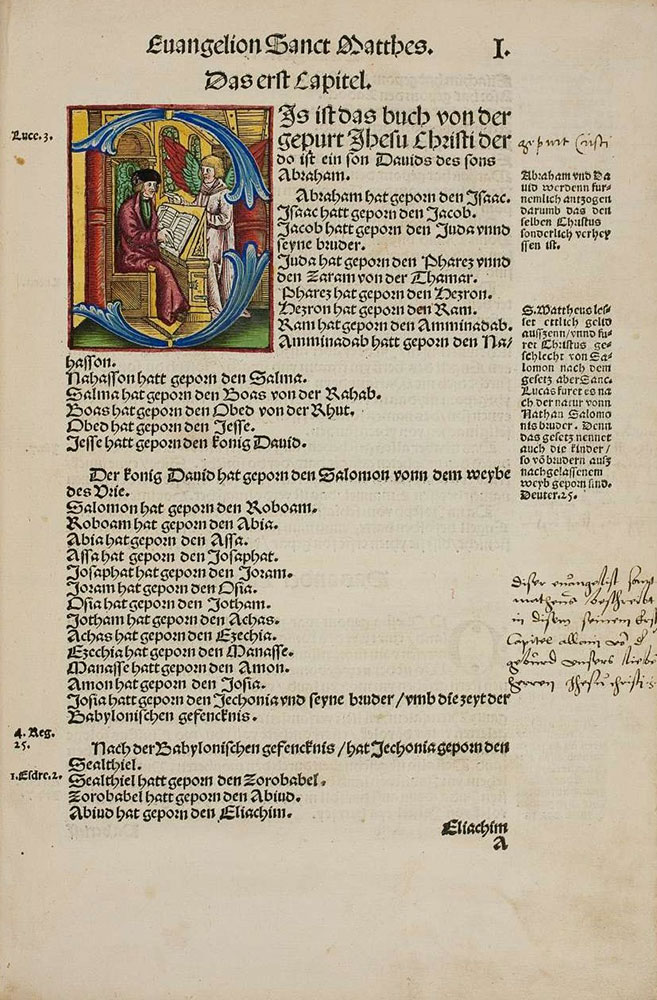 Euangelion Sanct Matthes. I.
Das erst Capitel.
DIs ist das buch von der
gepurt Jhesu Christi der
do ist ein son Dauids des sons
Abraham.
Abraham hat geporn den Isaac.
Isaac hatt geporn den Jacob.
Jacob hatt geporn den Juda vnnd
seyne bruder.
Juda hat geporn den Pharez vnnd
den Zaram von der Thamar.
Pharez hat geporn den Hezron.
Hezron hat geporn den Ram.
Ram hat geporn den Amminadab.
Amminadab hatt geporn den Na/
hasson.
Nahasson hatt geporn den Salma.
Salma hat geporn den Boas von der Rahab.
Boas hat geporn den Obed von der Rhut.
Obed hat geporn den Jesse.
Jesse hatt geporn den konig Dauid.
Der konig Dauid hat geporn den Salomon vonn dem weybe
des Vrie.
Salomon hat geporn den Roboam.
Roboam hat geporn den Abia.
Abia hat geporn den Assa.
Assa hat geporn den Josaphat.
Josaphat hat geporn den Joram.
Joram hat geporn den Osia.
Osia hat geporn den Jotham.
Jotham hat geporn den Achas.
Achas hat geporn den Ezechia.
Ezechia hat geporn den Manasse.
Manasse hatt geporn den Amon.
Amon hat geporn den Josia.
Josia hatt geporn den Jechonia vnd seyne bruder / vmb die zeyt der
Babylonischen gefencknis.
Nach der Babylonischen gefencknis / hat Jechonia geporn den
Sealthiel.
Sealthiel hatt geporn den Zorobabel.
Zorobabel hatt geporn den Abiud.
Abiud hat geporn den Eliachim.
Eliachim
A
Luce. 3.
4. Reg.
25.
1. Esdre. 2.
gepurt Cristi
Abraham vnd Da
uid werdenn fur-
nemlich antzogen
darumb das den
selben Christus
sonderlich verhey
ssen ist.
S. Mattheus les-
set ettlich gelid
aussen / vnnd fu-
ret Christus ge-
schlecht von Sa-
lomon nach dem
gesetz aber Sanc.
Lucas furet es na
ch der natur vonn
Nathan Salomo
nis bruder. Denn
das gesetz nennet
auch die kinder /
so võ brudern ausz
nachgelassenem
weyb geporn sind.
Deuter. 25.
diser euangelist
matheus beschreibt
in disem seinem
Capitel allain
geburd vnsers
herren Jhesu christi